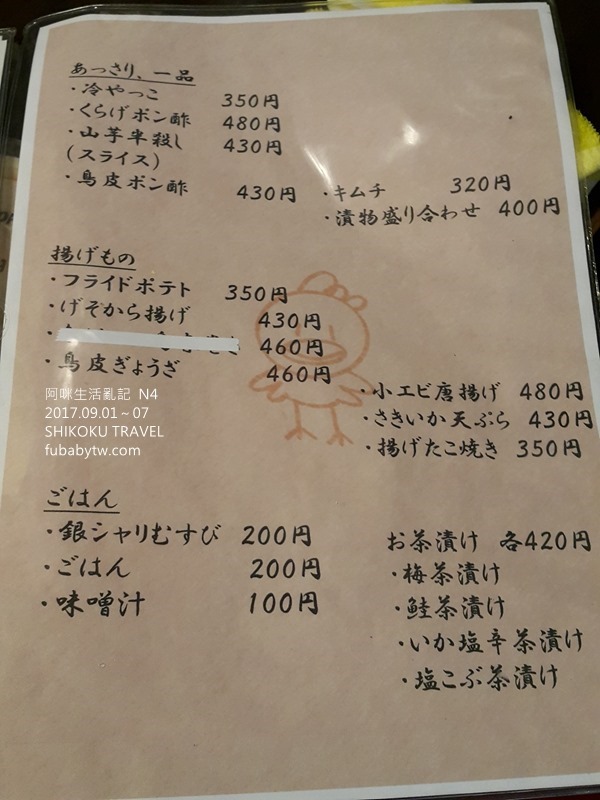 あっさり、一品
・冷やっこ 350円
・くらげポン酢 480円
・山芋半殺し 430円
(スライス)
・鳥皮ポン酢 430円
・キムチ 320円
・漬物盛り合わせ 400円
揚げもの
・フライドポテト 350円
・げそから揚げ 430円
460円
・鳥皮ぎょうざ 460円
・小エビ唐揚げ 480円
・さきいか天ぷら 430円
・揚げたこ焼き 350円
阿咪生活亂記 N4
2017.09.01~07
SHIKOKU TRAVEL
fubabytw.com
ごはん
・銀シャリむすび 200円
・ごはん 200円
・味噌汁 100円
お茶漬け 各420円
・梅茶漬け
・鮭茶漬け
・いか塩辛茶漬け
・塩こぶ茶漬け